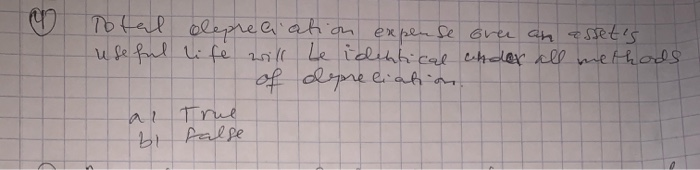 4 Total depreciation expense over an asset's
useful life will be identical under all methods
of depreciation.
a) True
b) False